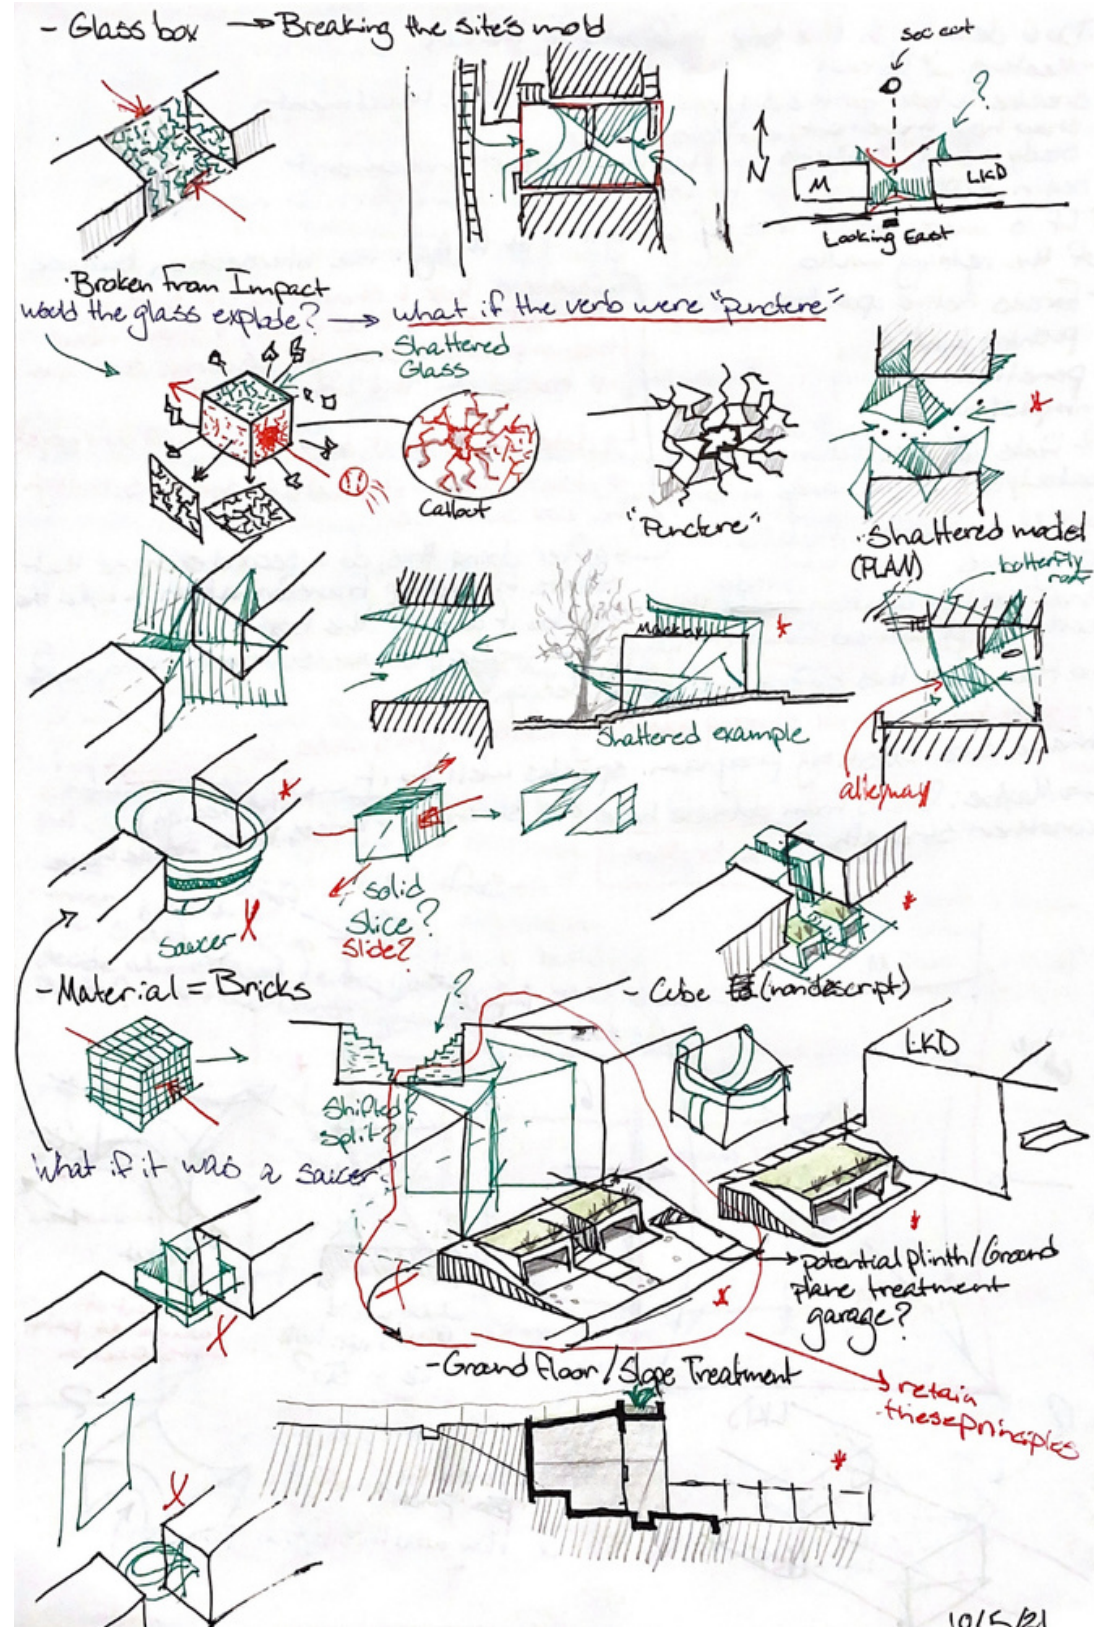 - Glass box → Breaking the site's mold
N
M
LKD
?
Looking East
·Broken from Impact
would the glass explode? → what if the verb were "puncture"
Shattered
Glass
Callout
"Puncture"
·Shattered model
(PLAN)
butterfly
roof
Mackay
Shattered example
alleyway
solid
slice?
slide?
saucer X
- Material = Bricks
- Cube (nondescript)
?
LKD
Shifted?
split?
What if it was a saucer
potential plinth/Ground
plane treatment
garage?
- Ground floor/Slope Treatment
retain
these principles
10/5/21